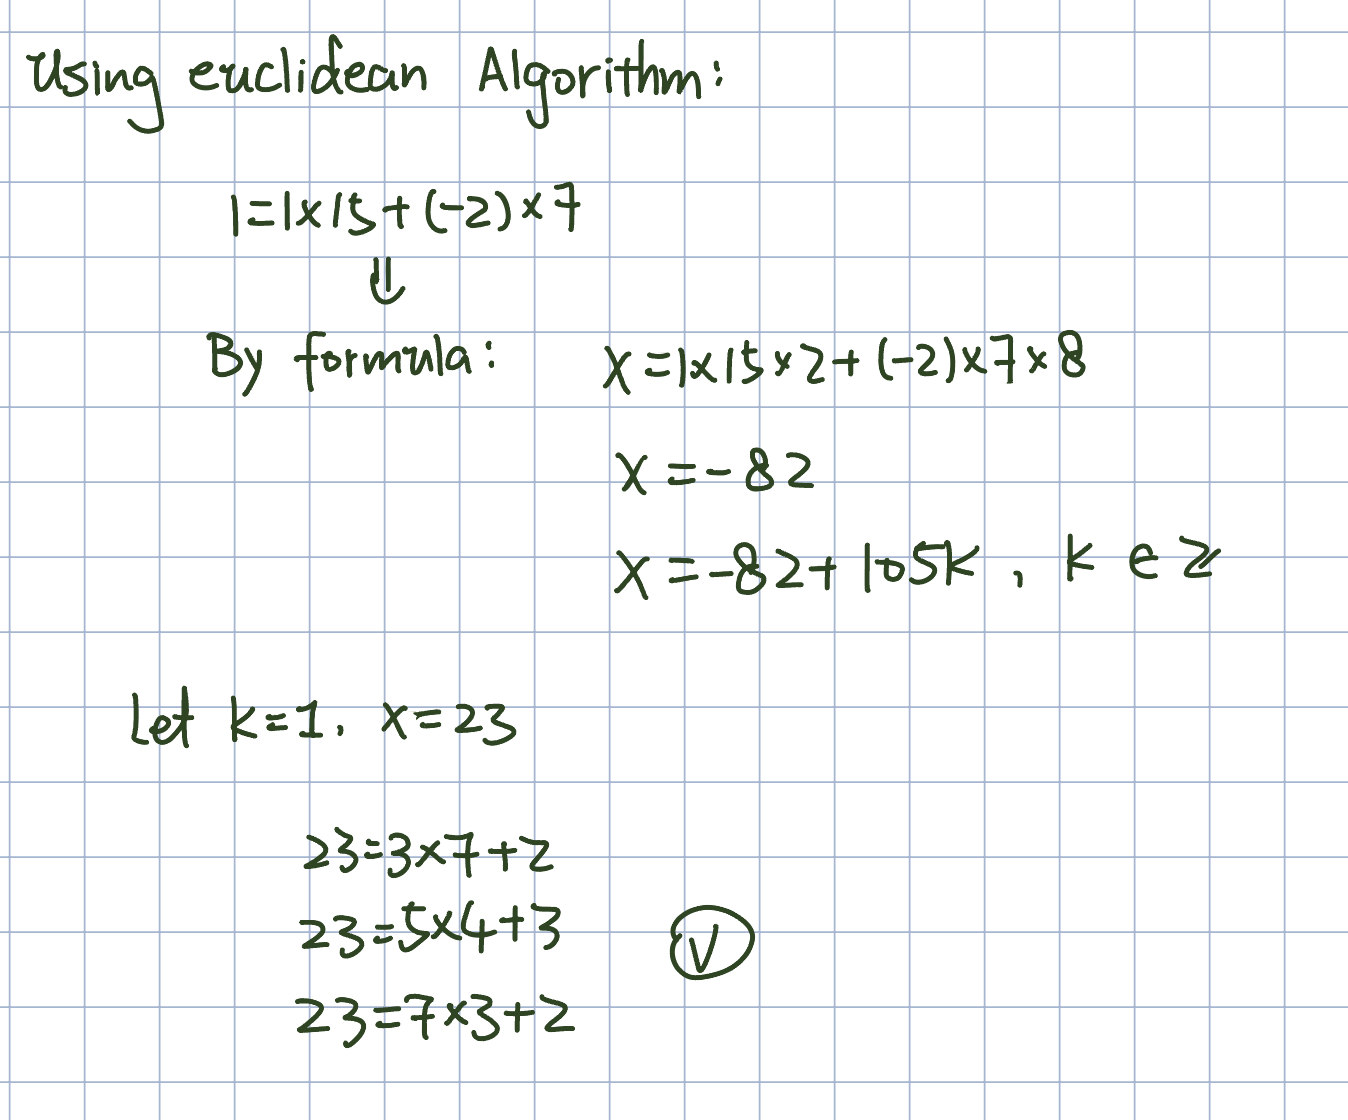 Using euclidean Algorithm:
1=1×15+(-2)×7
⇓
By formula: X=1×15×2+(-2)×7×8
X=-82
X=-82+105k, k ∈ Z
Let k=1, x=23
23=3×7+2
23=5×4+3
23=7×3+2
V